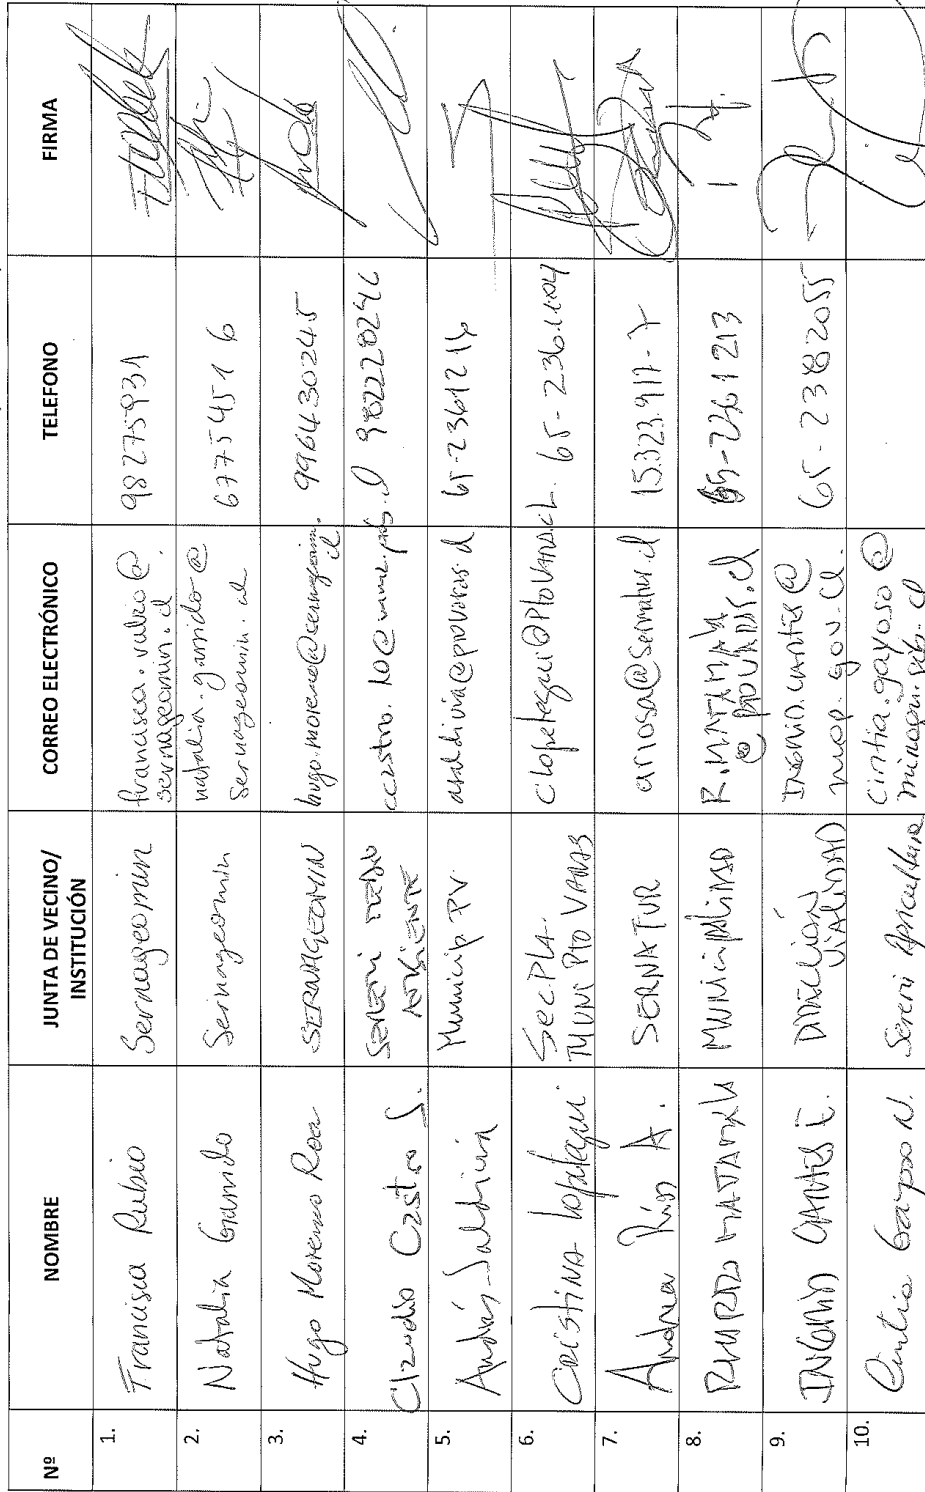 Nº NOMBRE JUNTA DE VECINO/ INSTITUCIÓN CORREO ELECTRÓNICO TELEFONO FIRMA
1. Francisca Rubio Sernageomin francisca.rubio@ sernageomin.cl 98275931
2. Natalia Garrido Sernageomin natalia.garrido@ sernageomin.cl 67754516
3. Hugo Moreno Roa SERNAGEOMIN hugo.moreno@sernageomin.cl 996430245
4. Claudio Castro S. Seremi Medio Ambiente ccastro.10@mma.gob.cl
5. Andrés Saldivia Municip. PV. asaldivia@ptovaras.cl 65-2361216
6. CRISTINA Lopetegui. SECPLA- MUNI PTO VARAS clopetegui@PtoVARAS.cl. 65-236.1104
7. Andrea Ríos A. SERNATUR ariosa@sernatur.cl 15.323.917-7
8. MATAMALA MUNICIPALIDAD R.MATAMALA @ PTOVARAS.cl 65-2261213
9. DIRECCION VIALIDAD mop.gov.cl. 65-2382055
10. Cintia Gayoso N. Seremi Agricultura cintia.gayoso@ minagri.gob.cl